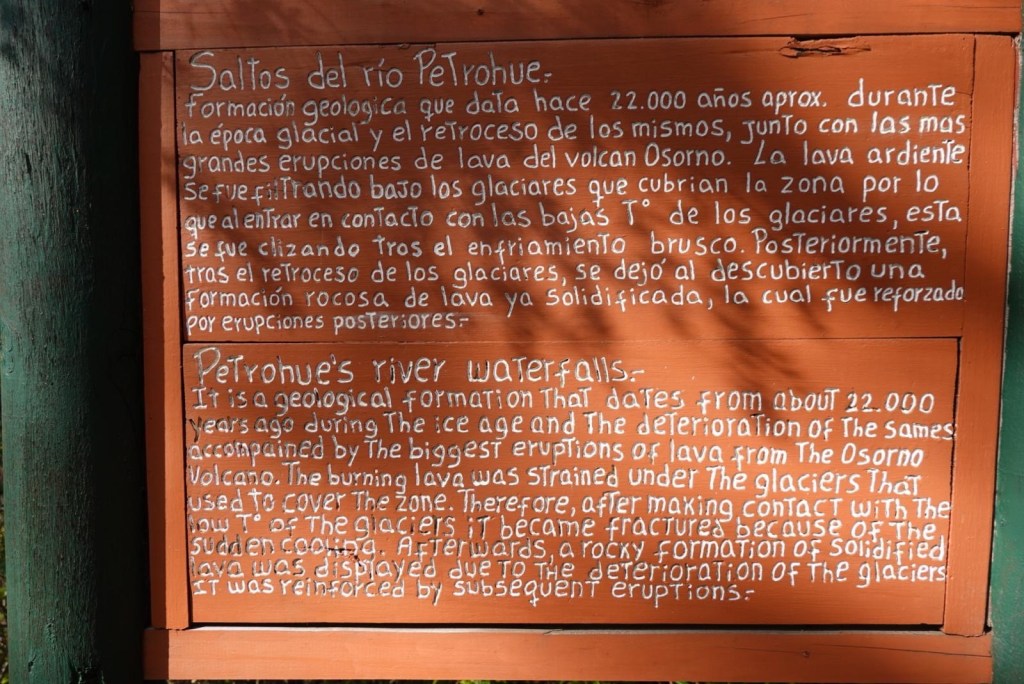 Saltos del río Petrohue.-
Formación geologica que data hace 22.000 años aprox. durante
la época glacial y el retroceso de los mismos, junto con las mas
grandes erupciones de lava del volcan Osorno. La lava ardiente
se fue filtrando bajo los glaciares que cubrian la zona por lo
que al entrar en contacto con las bajas T° de los glaciares, esta
se fue clizando tros el enfriamiento brusco. Posteriormente,
tras el retroceso de los glaciares, se dejó al descubierto una
formación rocosa de lava ya solidificada, la cual fue reforzado
por erupciones posteriores.-
Petrohue's river waterfalls.-
It is a geological formation that dates from about 22.000
years ago during the ice age and the deterioration of the sames
accompained by the biggest eruptions of lava from the Osorno
Volcano. The burning lava was strained under the glaciers that
used to cover the zone. Therefore, after making contact with the
low T° of the glaciers it became fractures because of the
sudden cooling. Afterwards, a rocky formation of solidified
lava was displayed due to the deterioration of the glaciers.
It was reinforced by subsequent eruptions.-